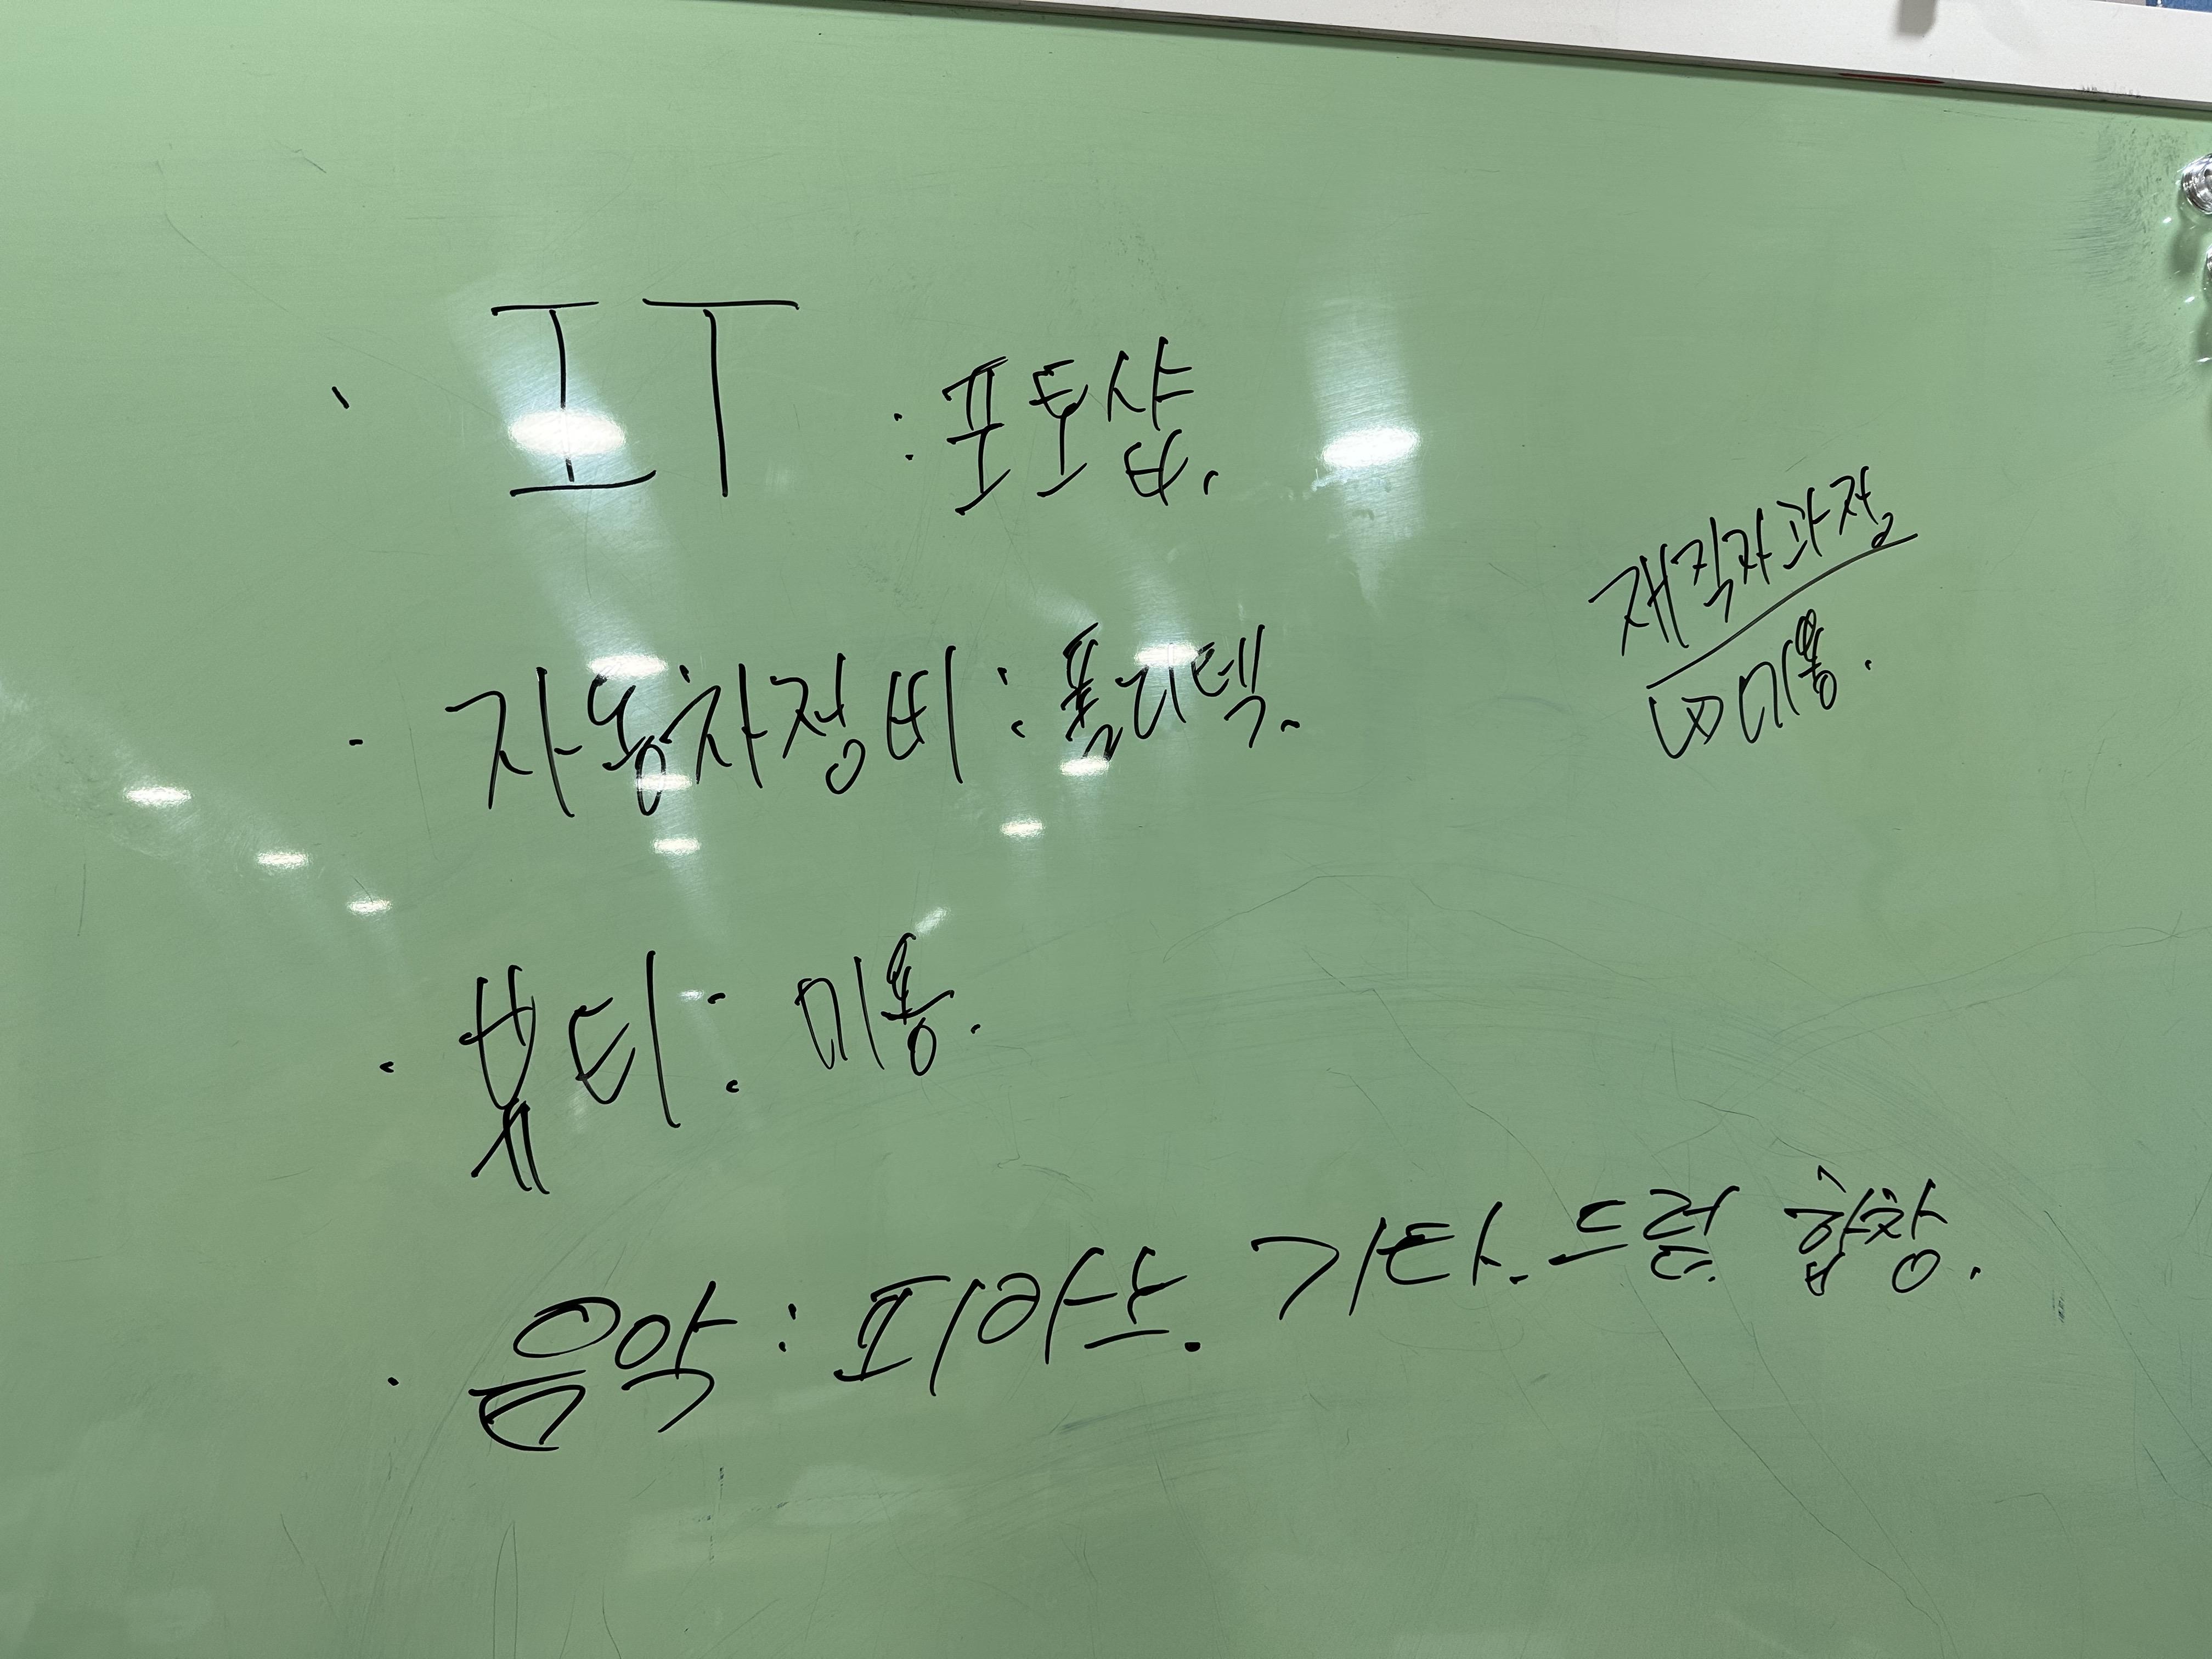 · IT : 포토샵.
재직자과정
· 자동차정비 : 폴리텍.
미용.
· 뷰티 : 미용.
· 음악 : 피아노. 기타. 드럼 합창.